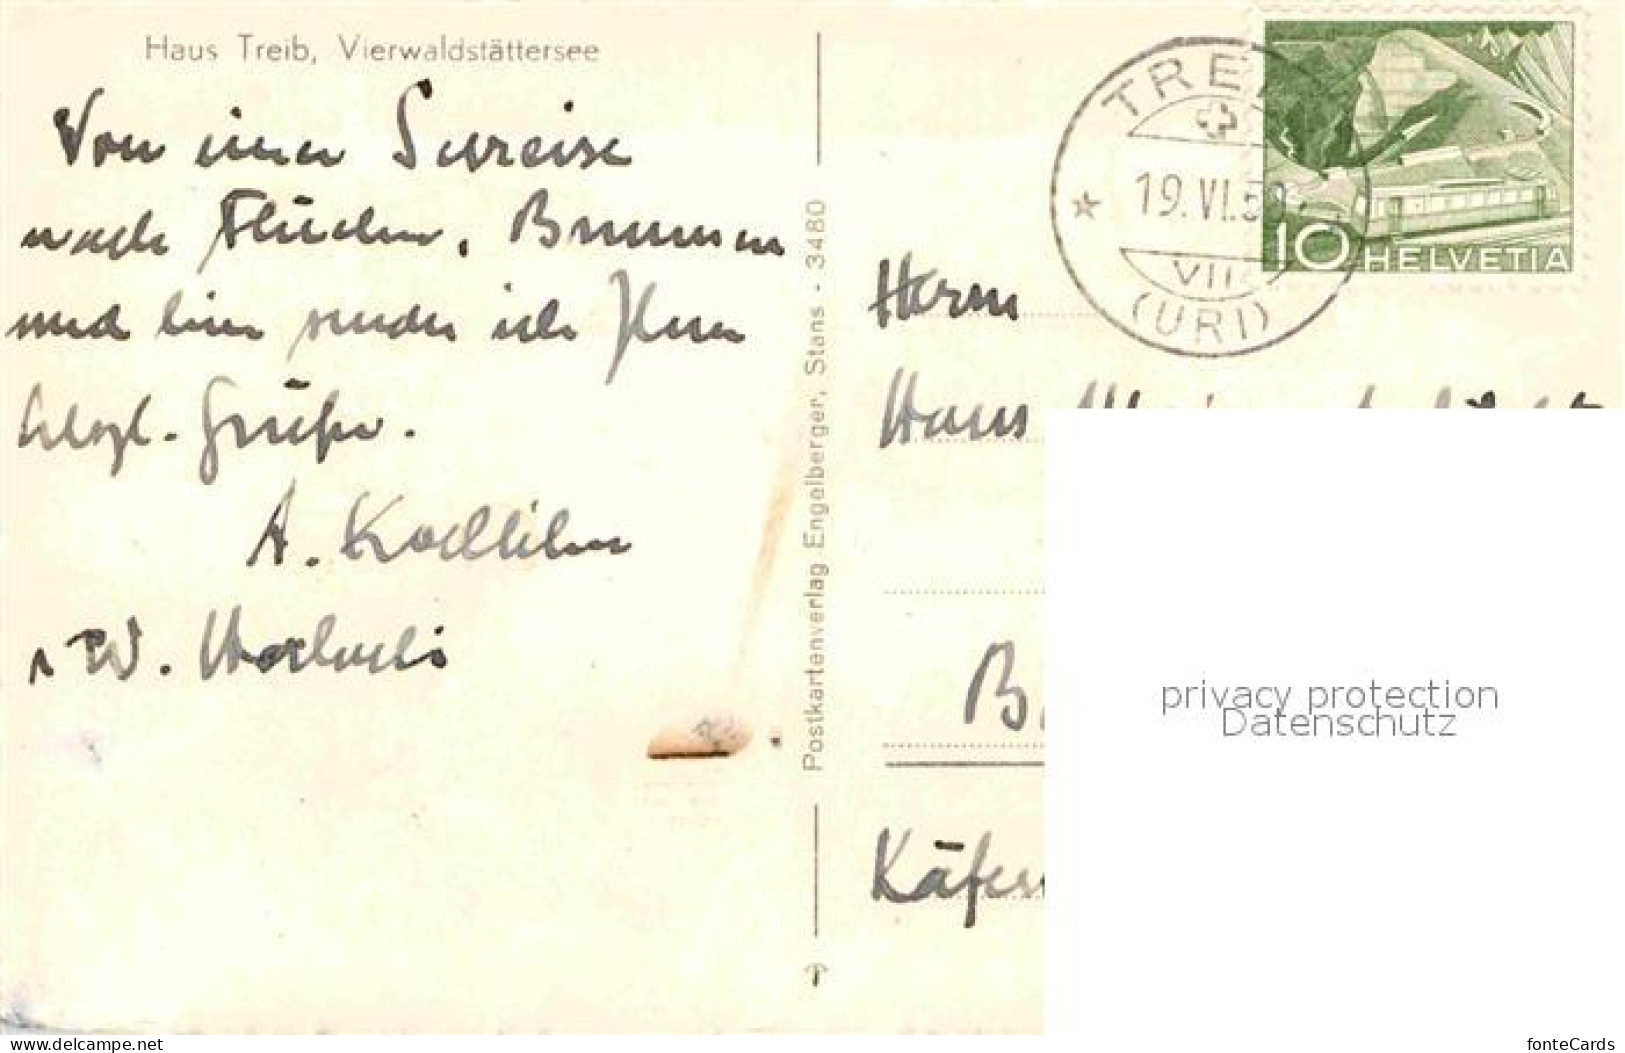 Haus Treib, Vierwaldstättersee
Von einer Seereise
nach Flüelen, Brunnen
und hier sende ich Ihnen
herzl. Grüsse.
A. Koelliker
W.
Postkartenverlag Engelberger, Stans - 3480
TREIB
19.VI.50
VIII
(URI)
10 HELVETIA
Herrn
Hans
B
Käfer
privacy protection
Datenschutz
www.delcampe.net
fonteCards